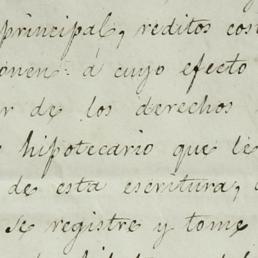 principal, reditos cos
onen: á cuyo efecto
r de los derechos
hipotecario que le
de esta escritura,
se registre y tome